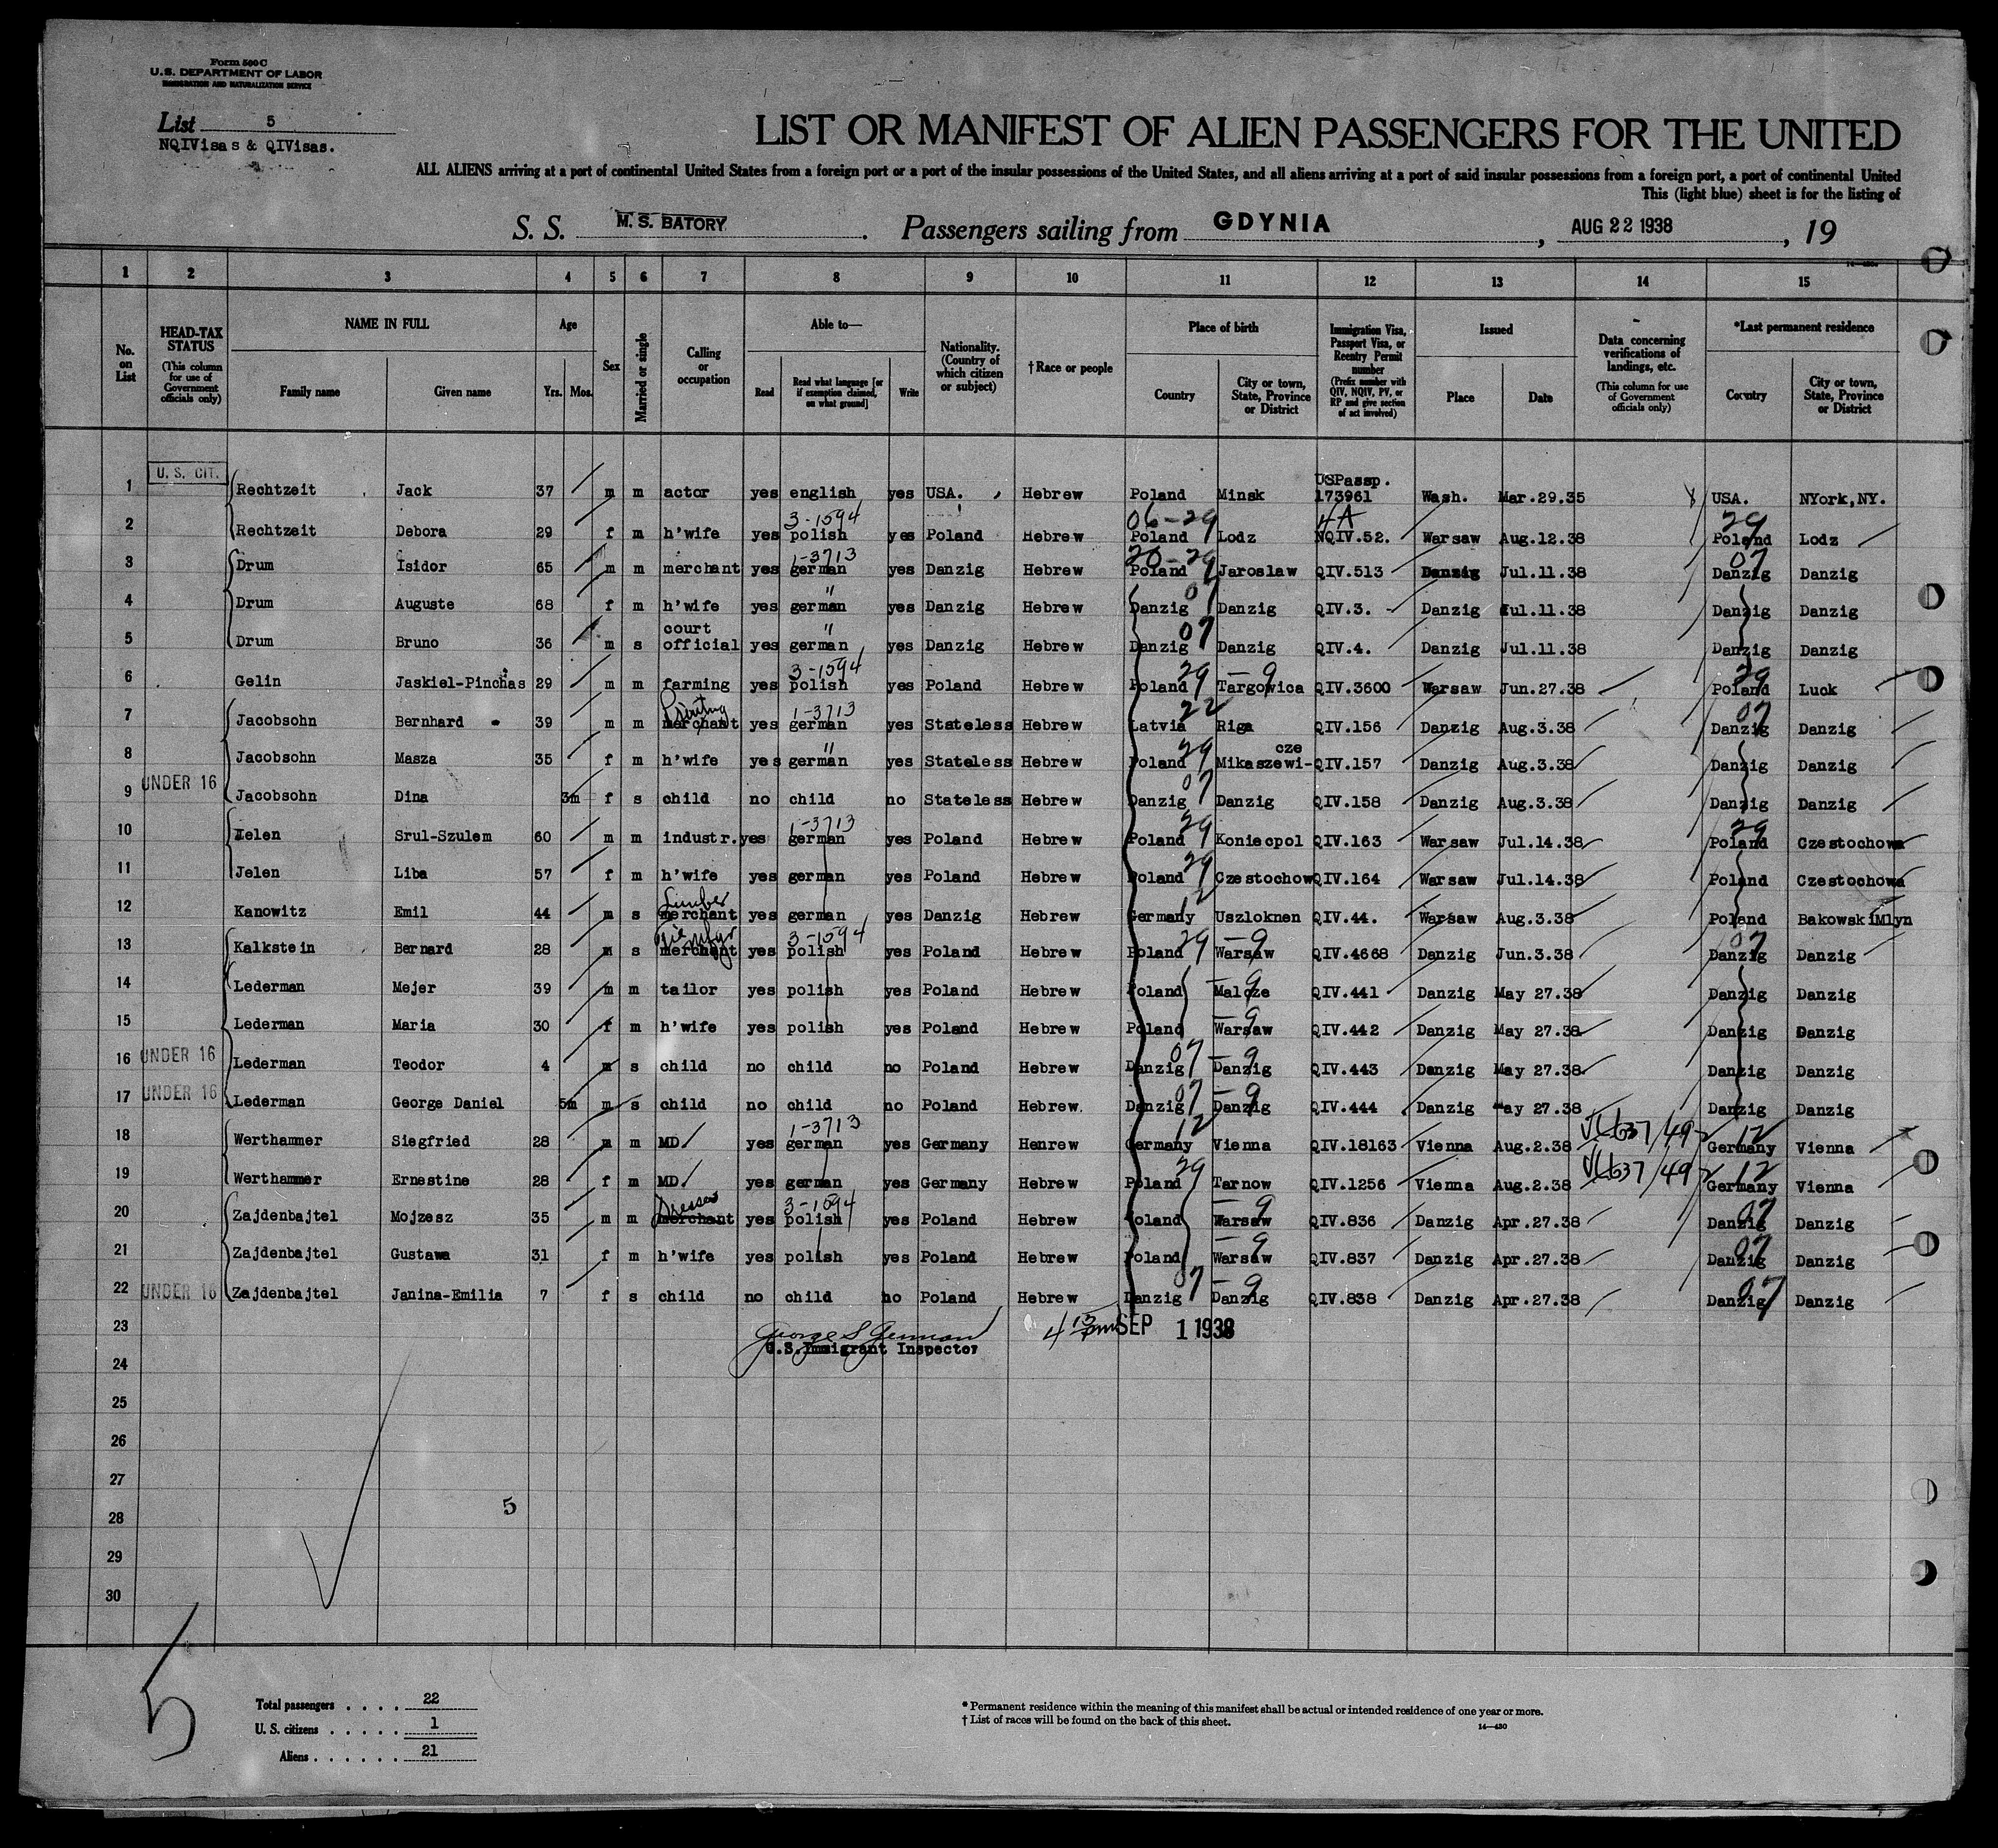 Form 500 C
U. S. DEPARTMENT OF LABOR
IMMIGRATION AND NATURALIZATION SERVICE
List 5
NQIVisas & QIVisas.
LIST OR MANIFEST OF ALIEN PASSENGERS FOR THE UNITED
ALL ALIENS arriving at a port of continental United States from a foreign port or a port of the insular possessions of the United States, and all aliens arriving at a port of said insular possessions from a foreign port, a port of continental United
This (light blue) sheet is for the listing of
S. S. M. S. BATORY. Passengers sailing from GDYNIA, AUG 22 1938, 19
1 2 3 4 5 6 7 8 9 10 11 12 13 14 15
No. on List
HEAD-TAX STATUS (This column for use of Government officials only)
NAME IN FULL Family name Given name
Age Yrs. Mos.
Sex
Married or single
Calling or occupation
Able to— Read Read what language [or if exemption claimed, on what ground] Write
Nationality. (Country of which citizen or subject)
† Race or people
Place of birth Country City or town, State, Province or District
Immigration Visa, Passport Visa, or Reentry Permit number (Prefix number with QIV, NQIV, PV, or RP and give section of act involved)
Issued Place Date
Data concerning verifications of landings, etc. (This column for use of Government officials only)
*Last permanent residence Country City or town, State, Province or District
1 U. S. CIT. Rechtzeit Jack 37 m m actor yes english yes USA. Hebrew Poland Minsk USPassp. 173961 Wash. Mar.29.35 USA. NYork,NY.
3-1594 06-29 4A 29
2 Rechtzeit Debora 29 f m h'wife yes polish yes Poland Hebrew Poland Lodz NQIV.52. Warsaw Aug.12.38 Poland Lodz
1-3713 20-29 07
3 Drum Isidor 65 m m merchant yes german yes Danzig Hebrew Poland Jaroslaw QIV.513 Danzig Jul.11.38 Danzig Danzig
" 07
4 Drum Auguste 68 f m h'wife yes german yes Danzig Hebrew Danzig Danzig QIV.3. Danzig Jul.11.38 Danzig Danzig
" 07
5 Drum Bruno 36 m s court official yes german yes Danzig Hebrew Danzig Danzig QIV.4. Danzig Jul.11.38 Danzig Danzig
3-1594 29 — 9 29
6 Gelin Jaskiel-Pinchas 29 m m farming yes polish yes Poland Hebrew Poland Targowica QIV.3600 Warsaw Jun.27.38 Poland Luck
Printing 1-3713 22 07
7 Jacobsohn Bernhard 39 m m merchant yes german yes Stateless Hebrew Latvia Riga QIV.156 Danzig Aug.3.38 Danzig Danzig
" 29
8 Jacobsohn Masza 35 f m h'wife yes german yes Stateless Hebrew Poland Mikaszewi-cze QIV.157 Danzig Aug.3.38 Danzig Danzig
07
9 UNDER 16 Jacobsohn Dina 3m f s child no child no Stateless Hebrew Danzig Danzig QIV.158 Danzig Aug.3.38 Danzig Danzig
1-3713 29 29
10 Jelen Srul-Szulem 60 m m industr. yes german yes Poland Hebrew Poland Koniecpol QIV.163 Warsaw Jul.14.38 Poland Czestochowa
29
11 Jelen Liba 57 f m h'wife yes german yes Poland Hebrew Poland Czestochow QIV.164 Warsaw Jul.14.38 Poland Czestochowa
Lumber 12
12 Kanowitz Emil 44 m s merchant yes german yes Danzig Hebrew Germany Uszloknen QIV.44. Warsaw Aug.3.38 Poland Bakowski Mlyn
3-1594 29 — 9 07
13 Kalkstein Bernard 28 m s merchant yes polish yes Poland Hebrew Poland Warsaw QIV.4668 Danzig Jun.3.38 Danzig Danzig
— 9
14 Lederman Mejer 39 m m tailor yes polish yes Poland Hebrew Poland Malcze QIV.441 Danzig May 27.38 Danzig Danzig
— 9
15 Lederman Maria 30 f m h'wife yes polish yes Poland Hebrew Poland Warsaw QIV.442 Danzig May 27.38 Danzig Danzig
07 — 9
16 UNDER 16 Lederman Teodor 4 m s child no child no Poland Hebrew Danzig Danzig QIV.443 Danzig May 27.38 Danzig Danzig
07 — 9
17 UNDER 16 Lederman George Daniel 5m m s child no child no Poland Hebrew. Danzig Danzig QIV.444 Danzig May 27.38 Danzig Danzig
1-3713 12 12
18 Werthammer Siegfried 28 m m MD. yes german yes Germany Henrew Germany Vienna QIV.18163 Vienna Aug.2.38 Germany Vienna
29 12
19 Werthammer Ernestine 28 f m MD. yes german yes Germany Hebrew Poland Tarnow QIV.1256 Vienna Aug.2.38 Germany Vienna
Dresses 3-1594 — 9 07
20 Zajdenbajtel Mojzesz 35 m m merchant yes polish yes Poland Hebrew Poland Warsaw QIV.836 Danzig Apr.27.38 Danzig Danzig
— 9 07
21 Zajdenbajtel Gustawa 31 f m h'wife yes polish yes Poland Hebrew Poland Warsaw QIV.837 Danzig Apr.27.38 Danzig Danzig
07 — 9 07
22 UNDER 16 Zajdenbajtel Janina-Emilia 7 f s child no child no Poland Hebrew Danzig Danzig QIV.838 Danzig Apr.27.38 Danzig Danzig
23 George S 4 15 pm SEP 1 1938
U.S.Immigrant Inspector
24
25
26
27
28 5
29
30
5
Total passengers . . . . 22
U. S. citizens . . . . . 1
Aliens . . . . . . 21
* Permanent residence within the meaning of this manifest shall be actual or intended residence of one year or more.
† List of races will be found on the back of this sheet.
14—430